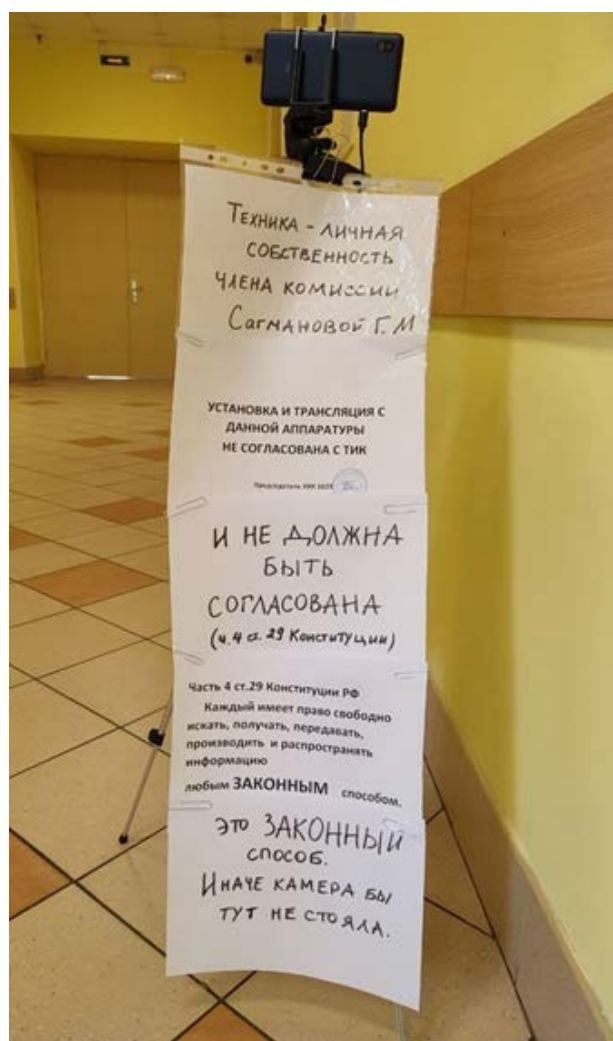 ТЕХНИКА - ЛИЧНАЯ
СОБСТВЕННОСТЬ
ЧЛЕНА КОМИССИИ
САГМАНОВОЙ Г.М
УСТАНОВКА И ТРАНСЛЯЦИЯ С
ДАННОЙ АППАРАТУРЫ
НЕ СОГЛАСОВАНА С ТИК
Председатель УИК
И НЕ ДОЛЖНА
БЫТЬ
СОГЛАСОВАНА
(ч.4 ст. 29 Конституции)
Часть 4 ст.29 Конституции РФ
Каждый имеет право свободно
искать, получать, передавать,
производить и распространять
информацию
любым ЗАКОННЫМ способом.
ЭТО ЗАКОННЫЙ
СПОСОБ.
ИНАЧЕ КАМЕРА БЫ
ТУТ НЕ СТОЯЛА.